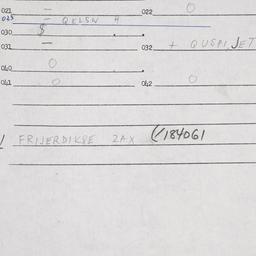 021 — 022 O
025 — QELSN A
030 $
031 — 032 + QUSPI, JET
040 O
041 O 042 O
FRIJERDIKSE ZAX (/184061